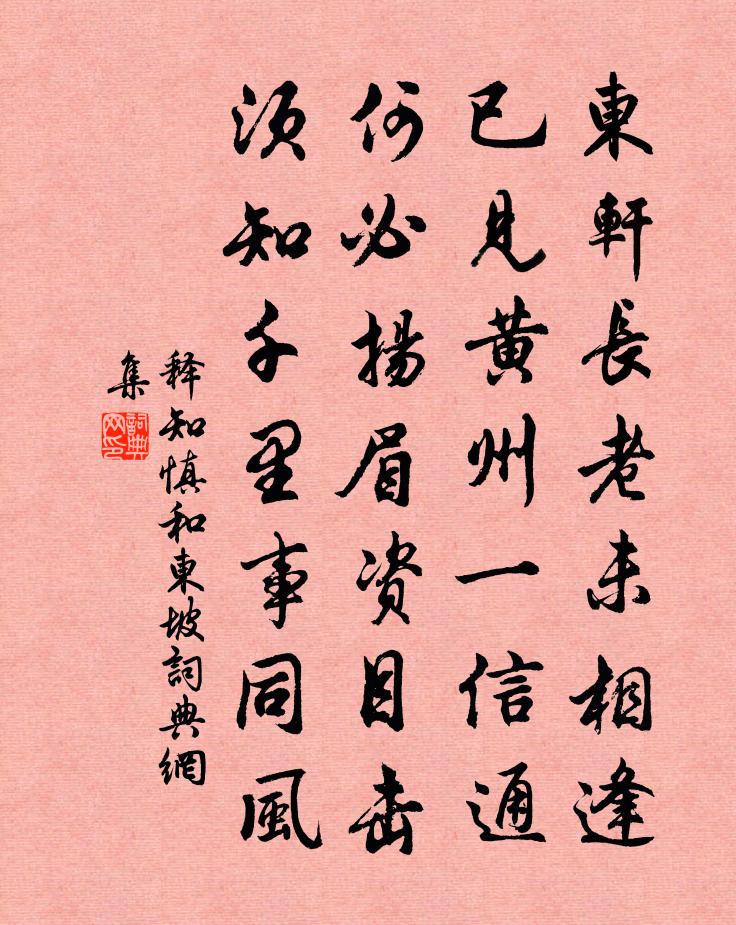 東軒長老未相逢
已見黄州一信通
何必揚眉资目击
须知千里事同風
释知慎和東坡詞典網
集
詞典网印